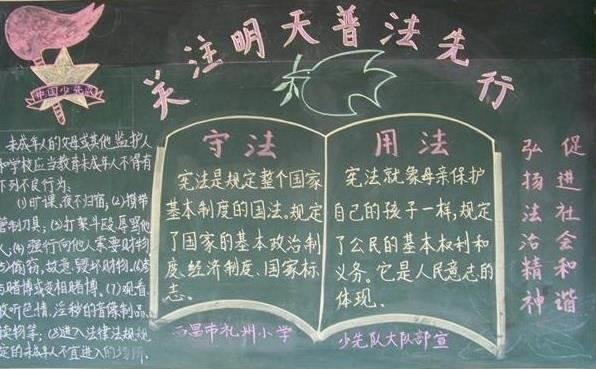 关注明天普法先行
中国少先队
未成年人的父母或其他监护人
和学校应当教育未成年人不得有
下列不良行为：
(1)旷课、夜不归宿；(2)携带
管制刀具；(3)打架斗殴、辱骂他
人；(4)强行向他人索要财物
(5)偷窃、故意毁坏财物；(6)参
与赌博或变相赌博；(7)观看
收听色情、淫秽的音像制品、
读物等；(8)进入法律法规规
定的未成年人不宜进入的场所.
守法
宪法是规定整个国家
基本制度的国法。规定
了国家的基本政治制
度、经济制度、国家标
志。
用法
宪法就象母亲保护
自己的孩子一样，规定
了公民的基本权利和
义务。它是人民意志的
体现。
西昌市礼州小学
少先队大队部宣
弘扬法治精神
促进社会和谐